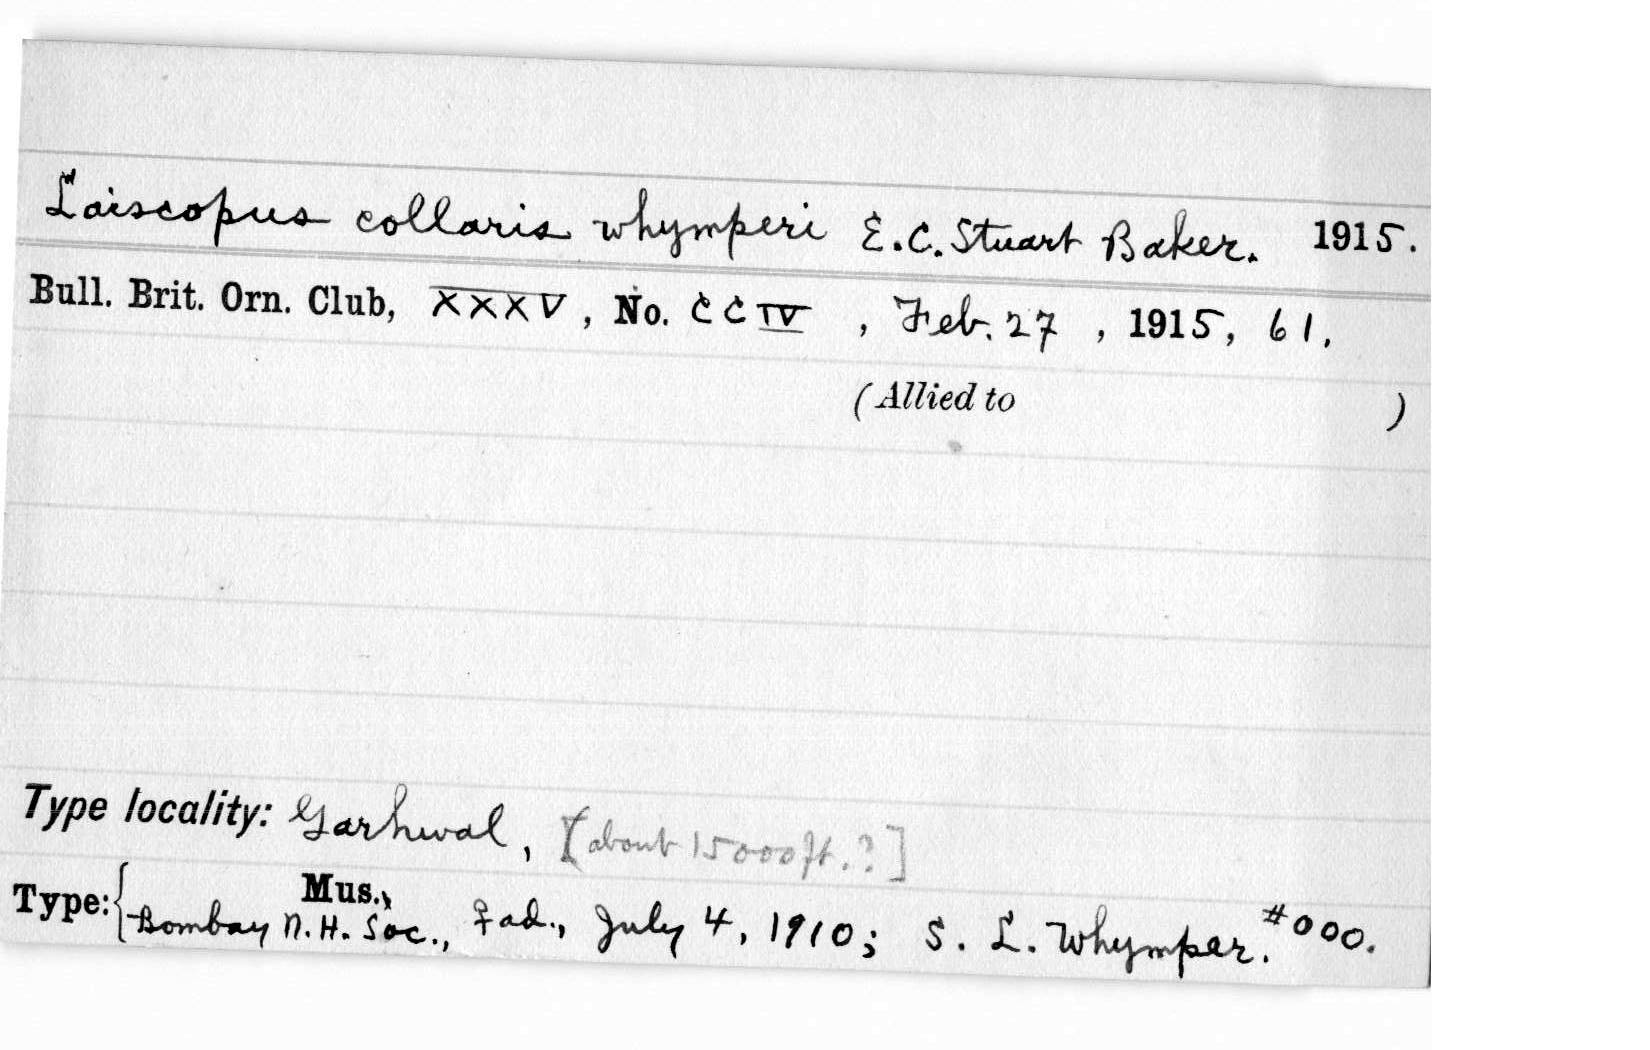 Laiscopus collaris whymperi E.C. Stuart Baker. 1915.
Bull. Brit. Orn. Club, XXXV, No. CCIV, Feb. 27, 1915, 61.
(Allied to )
Type locality: Garhwal, [about 15000ft.?]
Type: { Mus.,
Bombay N.H. Soc., ♀ ad., July 4, 1910; S. L. Whymper. #000.